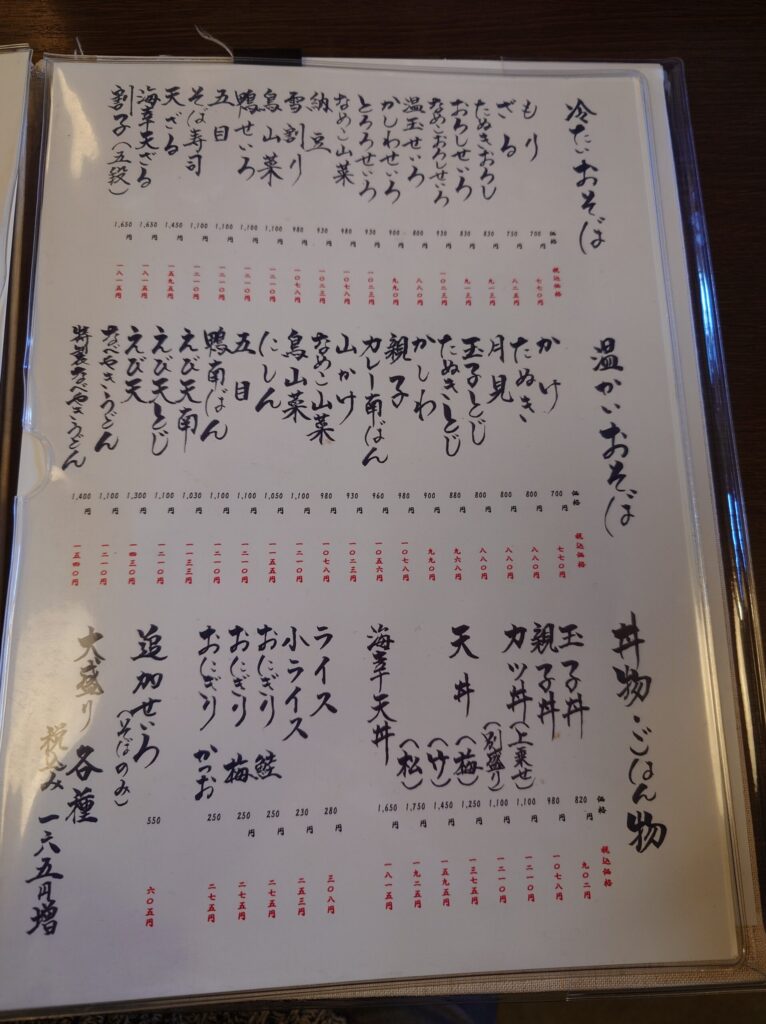 冷たいおそば 価格 税込価格
もり 700円 七七〇円
ざる 750円 八二五円
たぬきおろし 830円 九一三円
おろしせいろ 830円 九一三円
なめこおろしせいろ 930円 一〇二三円
温玉せいろ 800円 八八〇円
かしわせいろ 900円 九九〇円
とろろせいろ 930円 一〇二三円
なめこ山菜 980円 一〇七八円
納豆 930円 一〇二三円
雪割り 980円 一〇七八円
鳥山菜 1,100円 一二一〇円
鴨せいろ 1,100円 一二一〇円
五目 1,100円 一二一〇円
そば寿司 1,100円 一二一〇円
天ざる 1,450円 一五九五円
海幸天ざる 1,650円 一八一五円
割子(五段) 1,650円 一八一五円
温かいおそば 価格 税込価格
かけ 700円 七七〇円
たぬき 800円 八八〇円
月見 800円 八八〇円
玉子とじ 800円 八八〇円
たぬきとじ 880円 九六八円
かしわ 900円 九九〇円
親子 980円 一〇七八円
カレー南ばん 960円 一〇五六円
山かけ 930円 一〇二三円
なめこ山菜 980円 一〇七八円
鳥山菜 1,100円 一二一〇円
にしん 1,050円 一一五五円
五目 1,100円 一二一〇円
鴨南ばん 1,100円 一二一〇円
えび天南 1,030円 一一三三円
えび天とじ 1,100円 一二一〇円
えび天 1,300円 一四三〇円
なべやきうどん 1,100円 一二一〇円
特製なべやきうどん 1,400円 一五四〇円
丼物・ごはん物 価格 税込価格
玉子丼 820円 九〇二円
親子丼 980円 一〇七八円
カツ丼(上乗せ) 1,100円 一二一〇円
(別盛り) 1,100円 一二一〇円
天丼(梅) 1,250円 一三七五円
(竹) 1,450円 一五九五円
(松) 1,750円 一九二五円
海幸天丼 1,650円 一八一五円
ライス 280円 三〇八円
小ライス 230円 二五三円
おにぎり 鮭 250円 二七五円
おにぎり 梅 250円 二七五円
おにぎり かつお 250 二七五円
追加せいろ 550 六〇五円
(そばのみ)
大盛り 各種
税込み 一六五円増